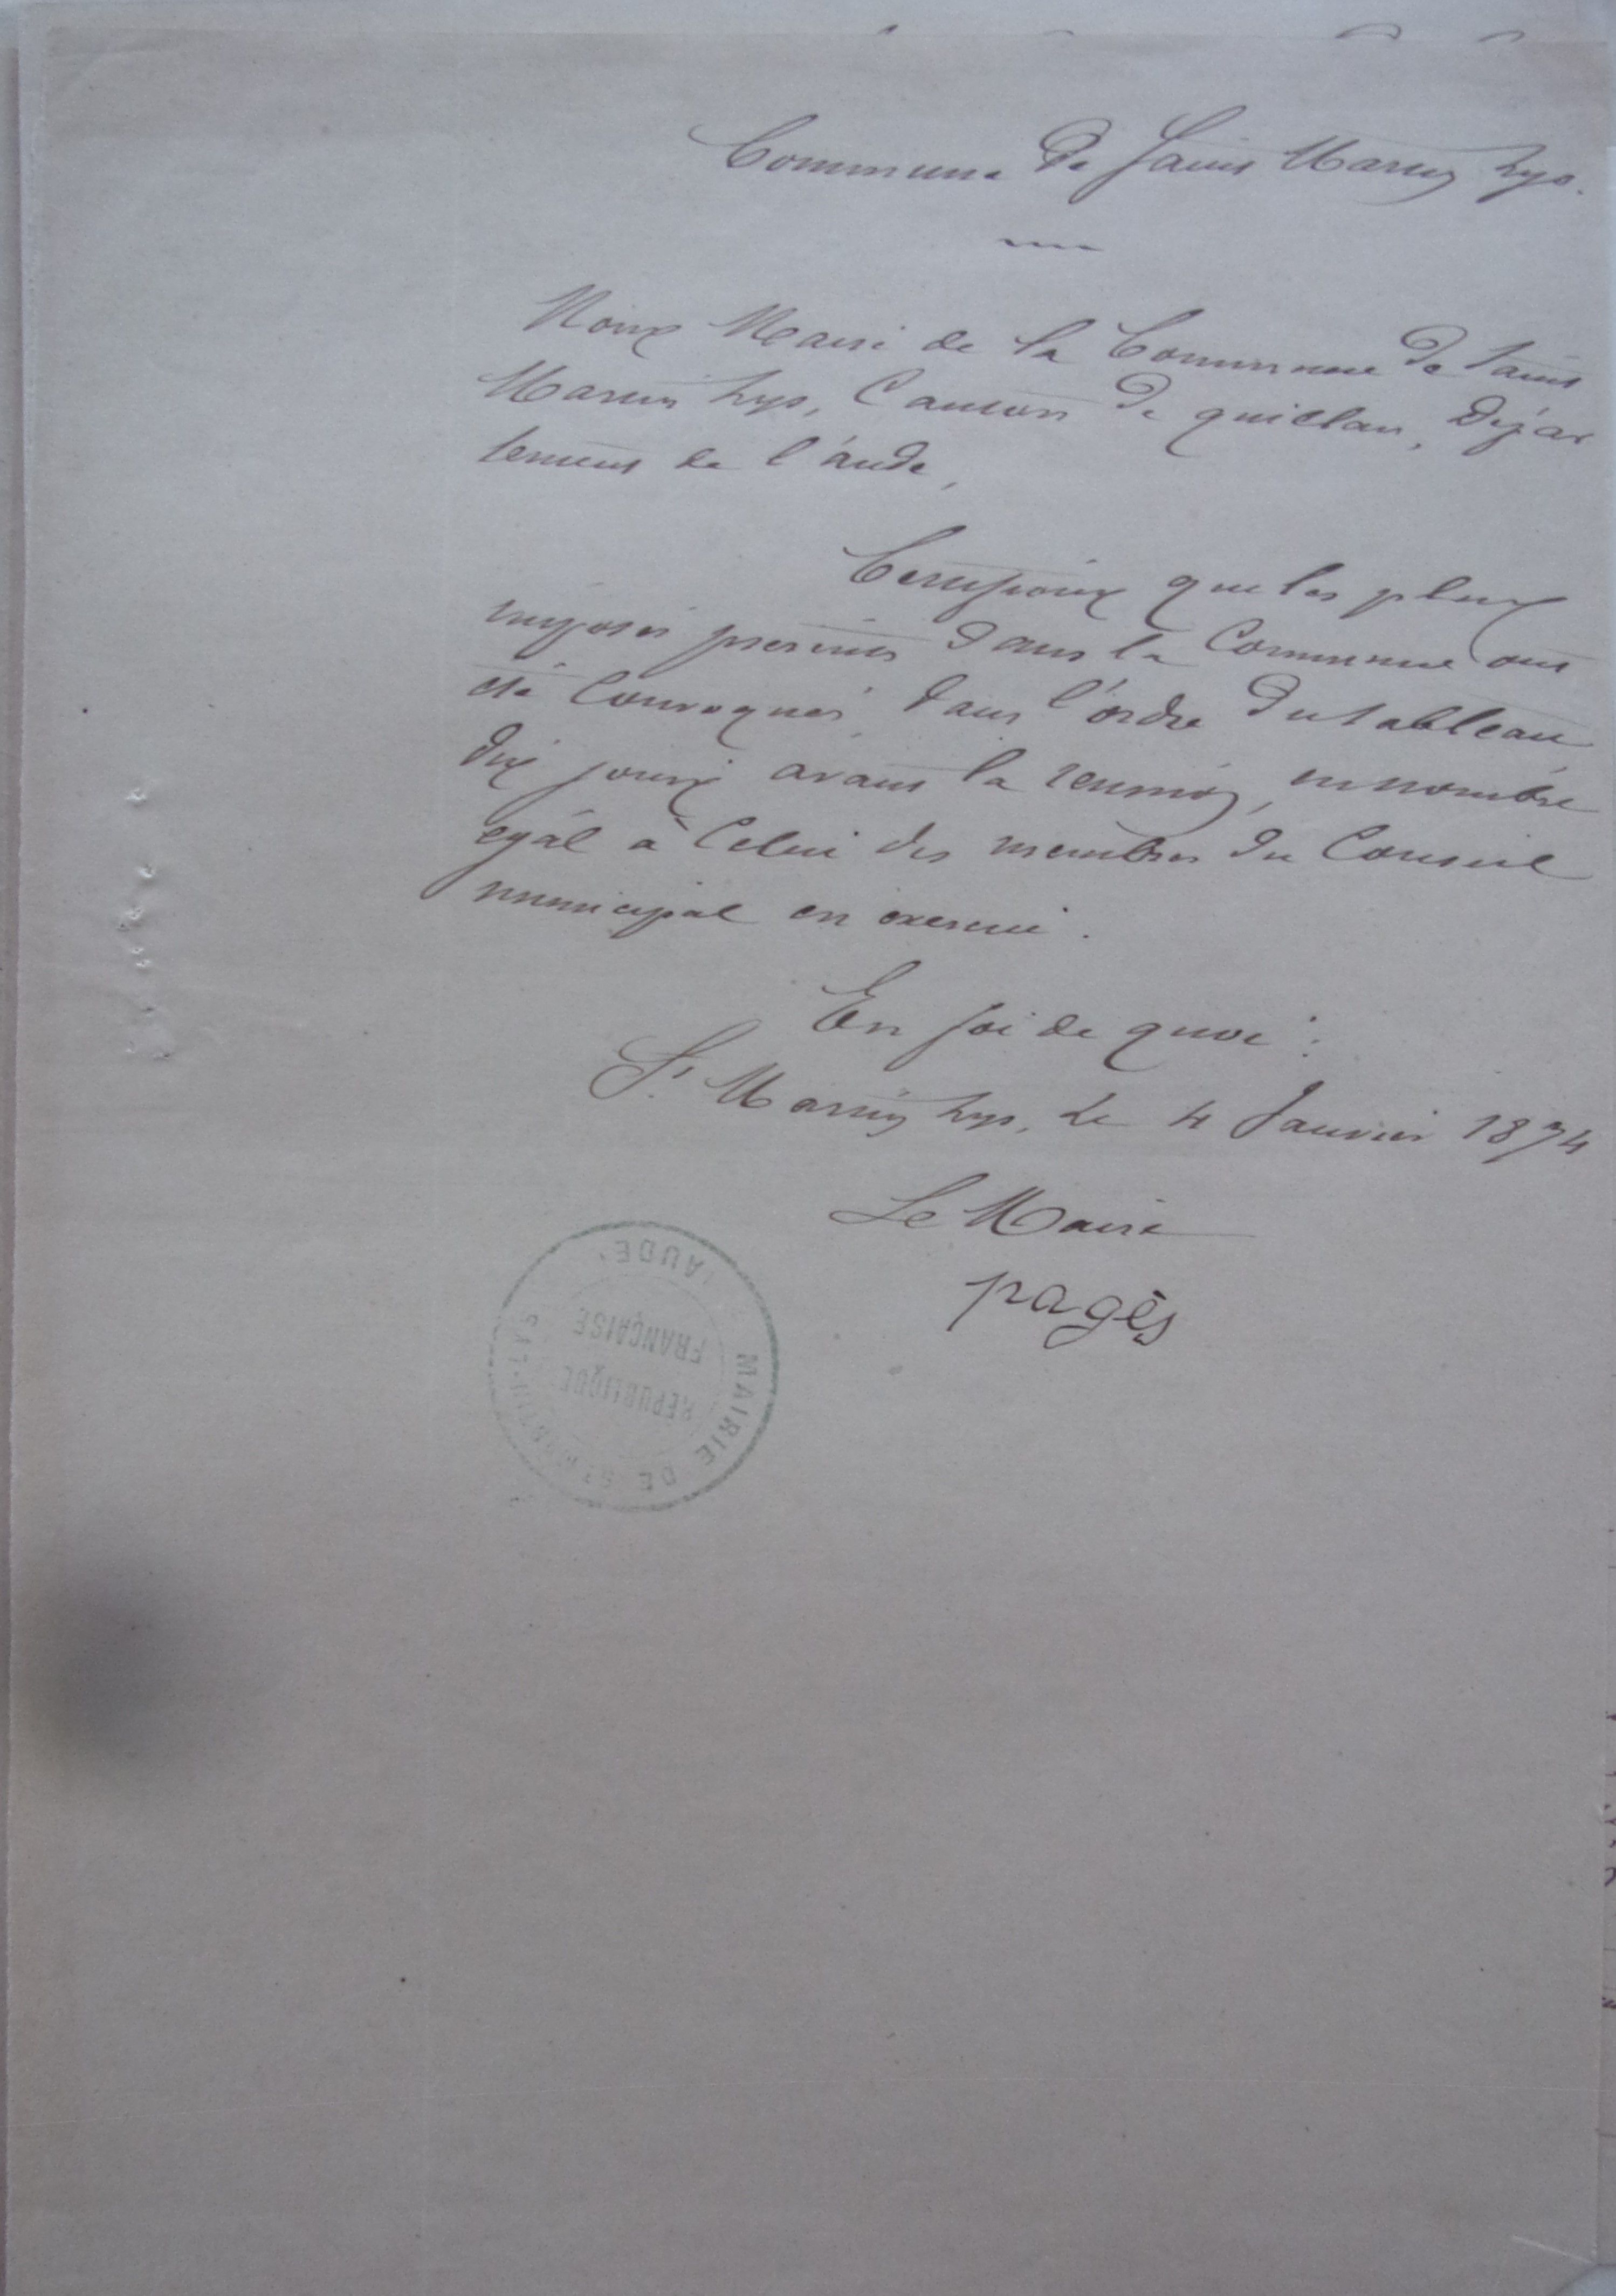 Commune de Saint Martin Lys.
Nous Maire de la Commune de Saint
Martin Lys, Canton de quillan, Dépar
tement de l'aude,
Certifions que les plus
imposés présents dans la Commune ont
été Convoqués, dans l'ordre du tableau
dix jours avant la réunion, en nombre
egál à Celui des membres du Conseil
municipal en exercice.
En foi de quoi :
St Martin Lys, Le 4 Janvier 1874
Le Maire
pagès
MAIRIE DE ST MARTIN-LYS
(AUDE)
RÉPUBLIQUE
FRANÇAISE